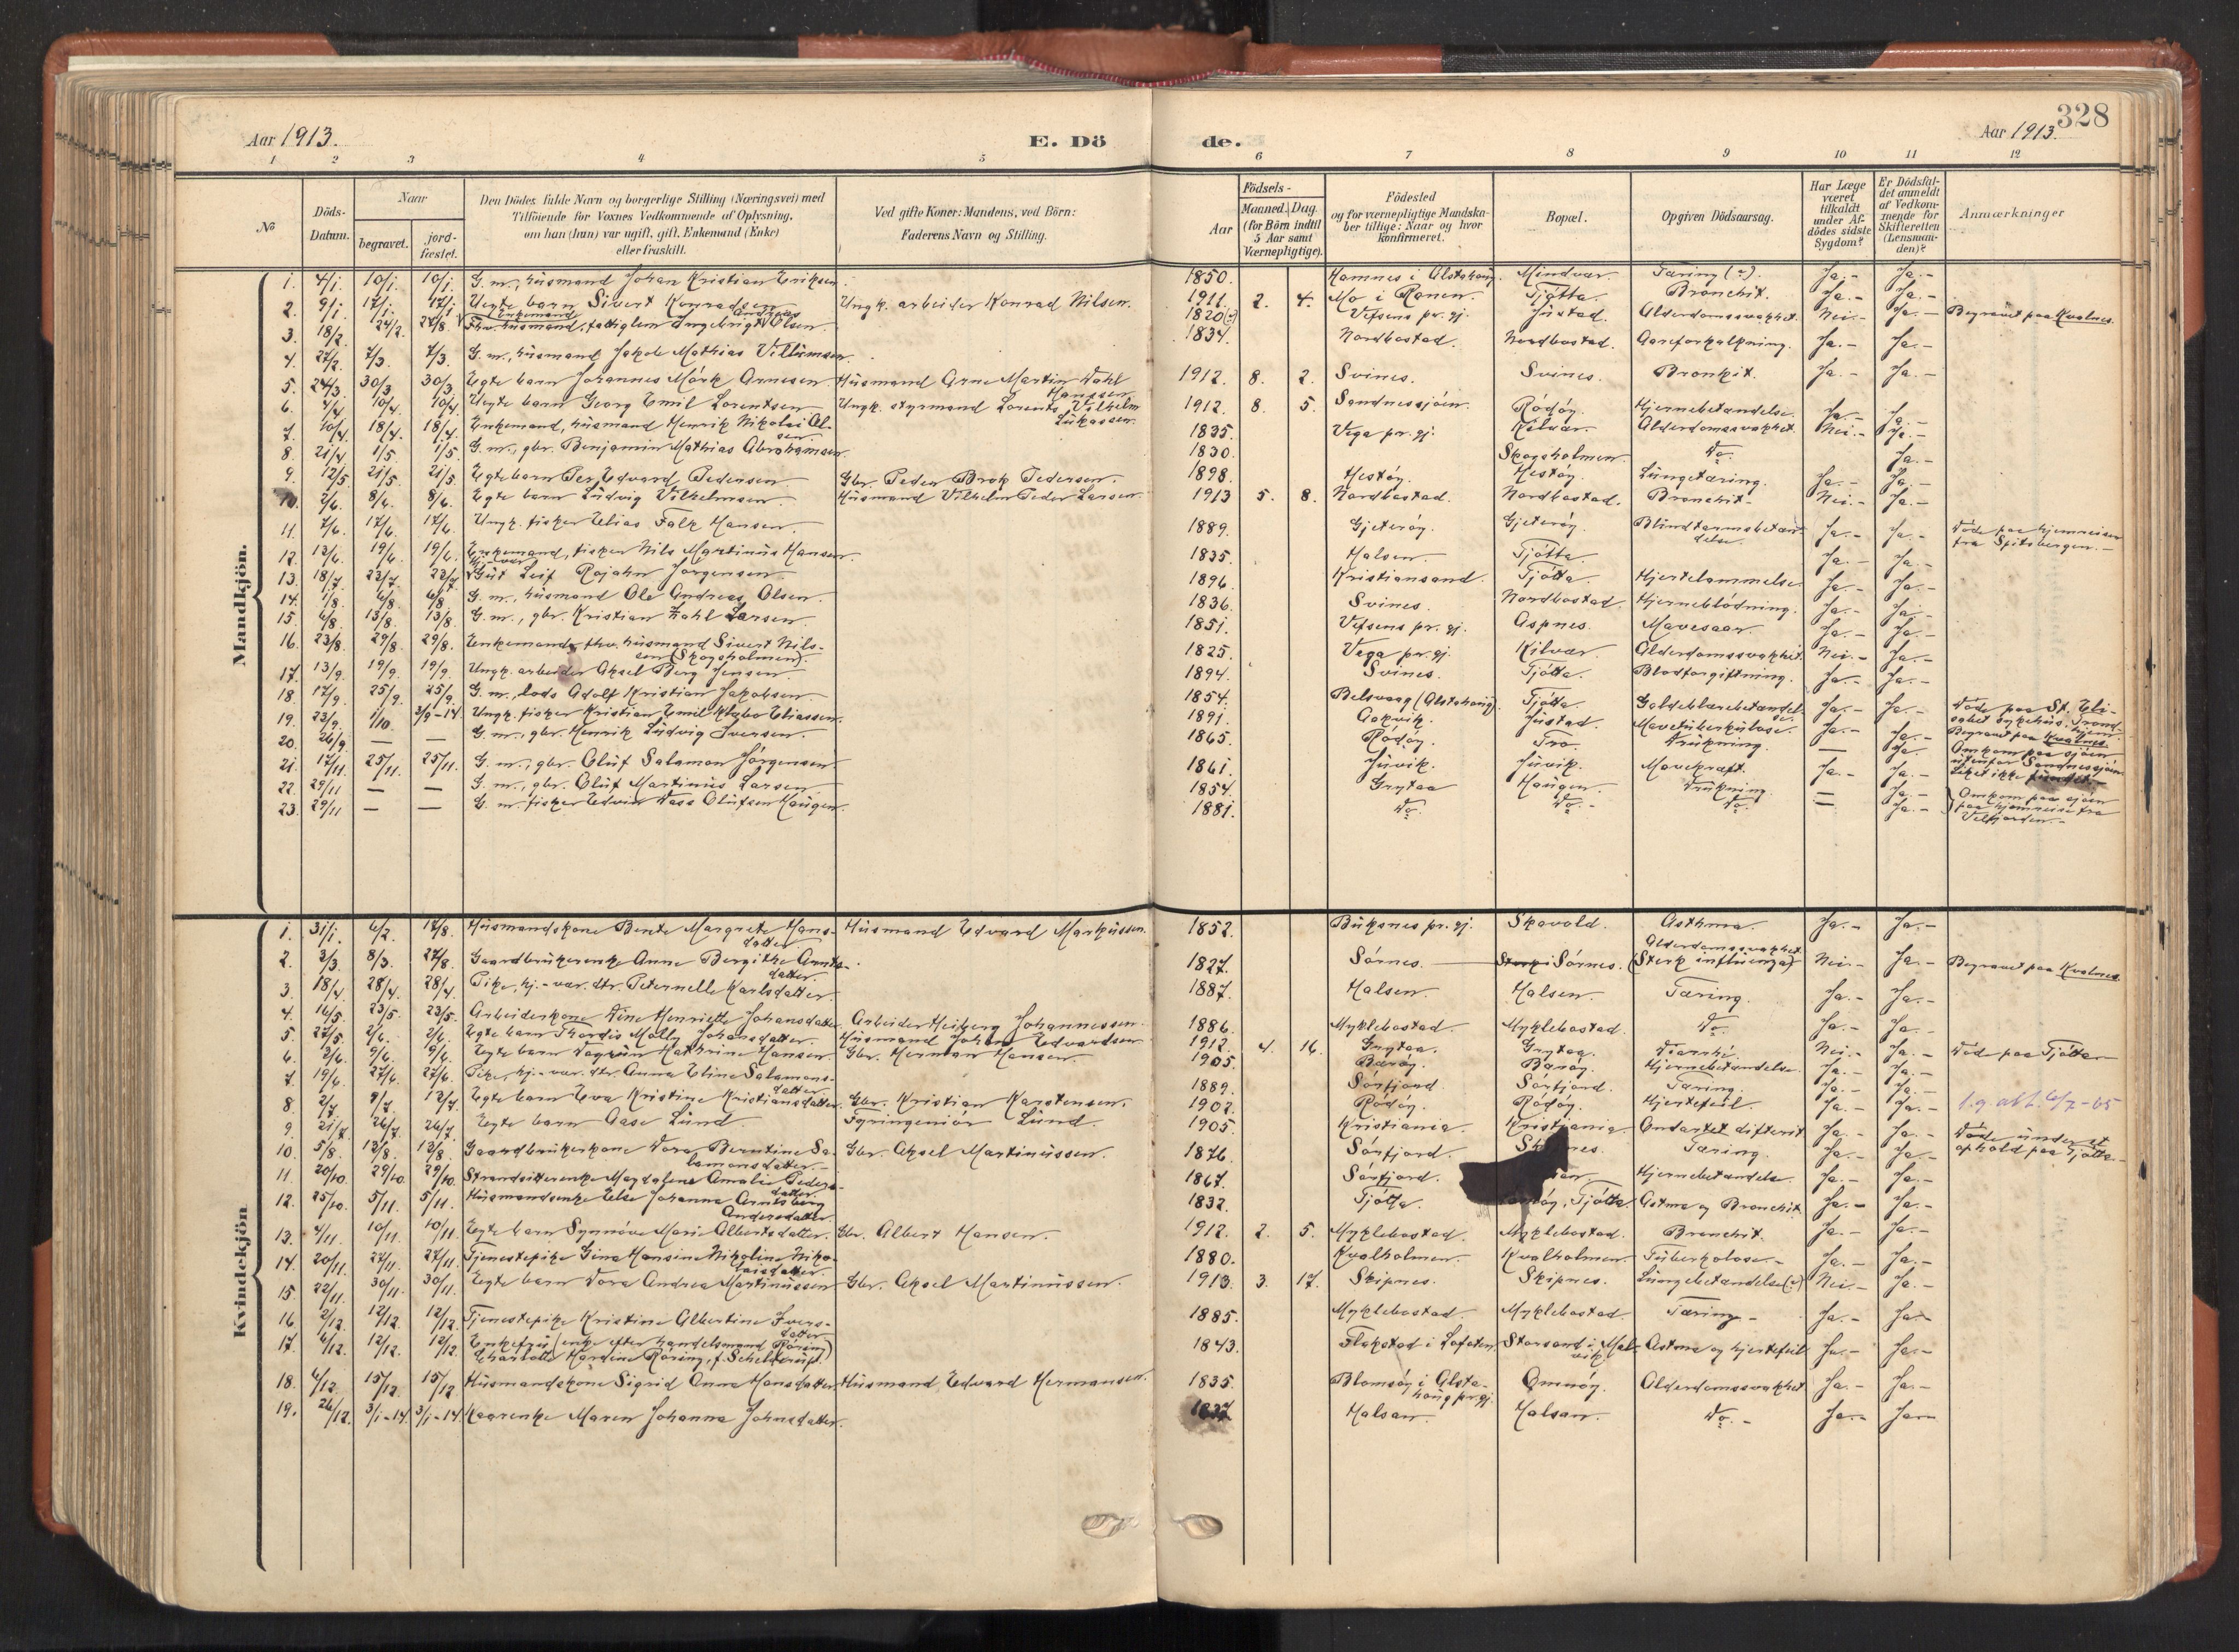 328
Aar 1913.
E. Dö
de.
Aar 1913.
1 2 3 4 5 6 7 8 9 10 11 12
No
Döds-
Datum.
Naar
begravet.
jord-
fæstet.
Den Dödes fulde Navn og borgerlige Stilling (Næringsvei) med
Tilföiende for Voxnes Vedkommende af Oplysning,
om han (hun) var ugift, gift, Enkemand (Enke)
eller fraskilt.
Ved gifte Koner: Mandens, ved Börn:
Faderens Navn og Stilling.
Aar
Födsels-
Maaned. Dag
(for Börn indtil
5 Aar samt
Værnepligtige).
Födested
og for værnepligtige Mandska-
ber tillige: Naar og hvor
konfirmeret.
Bopæl.
Opgiven Dödsaarsag.
Har Læge
været
tilkaldt
under Af-
dödes sidste
Sygdom?
Er Dödsfal-
det anmeldt
af Vedkom-
mende for
Skifteretten
(Lensman-
den)?
Anmærkninger
Mandkjön.
1. 4/1. 10/1. 10/1. G. m., husmand Johan Kristian Eriksen. 1850. Hamnes i Alstahoug. Mindvær. Tæring (?). Ja.- Ja.-
2. 9/1. 17/1. 17/1. Uegte barn Sivert Konradsen Ungk. arbeider Konrad Nilsen. 1911. 2. 4. Mo i Ranen. Tjøtta. Bronchit. Ja.- Ja.-
Enkemand Andreas
3. 18/2. 24/2. 24/8. Fhv. husmand, fattiglem Ingebrigt Olsen. 1820(?) Vefsens pr. gj. Justad. Alderdomssvakhet. Nei.- Ja.- Begravet paa Kvalnes.
4. 27/2. 7/3. 7/3. G. m., husmand Jakob Mathias Villumsen. 1834. Nordbostad. Nordbostad. Aareforkalkning. Ja.- Ja.-
5. 24/3. 30/3. 30/3. Egte barn Johannes Mörk Arnesen. Husmand Arne Martin Dahl
Hansen. 1912. 8. 2. Svines. Svines. Bronkit. Ja.- Ja.-
6. 4/4. 10/4. 10/4. Uegte barn Georg Emil Lorentsen Ungk. styrmand Lorents Vilhelm
Lukassen. 1912. 8. 5. Sandnessjöen. Rödöy. Hjernebetændelse. Ja.- Ja.-
7. 10/4. 18/4. 18/4. Enkemand, husmand Henrik Nikolai Ol-
sen. 1835. Vega pr. gj. Kilvær. Alderdomssvakhet. Nei.- Ja.-
8. 21/4 1/5 1/5. G. m., gbr. Benjamin Mathias Abrahamsen. 1830. Skogsholmen. Do. Ja.-
9. 12/5. 21/5. 21/5. Egte barn Per Edvard Pedersen Gbr. Peder Brok Pedersen. 1898. Hestöy. Hestöy. Lungetæring. Ja.- Ja.-
10. 2/6. 8/6. 8/6. Egte barn Ludvig Vilhelmsen Husmand Vilhelm Peder Larsen. 1913 5. 8. Nordbostad. Nordbostad. Bronchit. Nei.- Ja.-
11. 7/6. 17/6. 17/6. Ungk. fisker Elias Falk Hansen. 1889. Gjeteröy. Gjeteröy. Blindtarmsbetæn-
delse. Ja.- Ja.- Döde paa hjemreisen
fra Spitsbergen.-
12. 12/6. 19/6. 19/6. Enkemand, fisker Nils Martinus Hansen. 1835. Halsen. Tjøtta. Ja.- Ja.-
13. 18/7. 23/7. 23/7. Gut Leif Rojahn Jörgensen. 1896. Kristiansand. Tjøtta. Hjertelammelse. Ja.- Ja.-
14. 1/8. 6/8. 6/8. G. m., husmand Ole Andreas Olsen. 1836. Svines. Nordbostad. Hjerneblödning. Ja.- Ja.-
15. 6/8. 13/8. 13/8. G. m., gbr. Kristian Zahl Larsen. 1851. Vefsens pr. gj. Aspnes. Mavesaar. Ja.- Ja.-
16. 23/8. 29/8. 29/8. Enkemand, fhv. husmand Sivert Nils-
sen (Skogsholmen). 1825. Vega pr. gj. Kilvær. Alderdomssvakhet. Nei.- Ja.-
17. 13/9. 19/9. 19/9. Ungk. arbeider Aksel Berg Jensen. 1894. Svines. Tjøtta. Blodforgiftning. Ja.- Ja.-
18. 17/9. 25/9. 25/9. G. m., lods Adolf Kristian Jakobsen. 1854. Belsvaag (Alstahoug) Tjøtta. Galdeblærebetændel-
se. Ja.- Ja.- Döde paa St. Eli-
sabet sykehus, Trond-
hjem.
19. 23/9. 1/10. 3/9-14. Ungk. fisker Kristian Emil Klæbo Eliassen. 1891. Aakvik. Justad. Mavetuberkulose. Ja.- Ja.- Begravet paa Kvalnes.
20. 26/9. — — G. m., gbr. Henrik Ludvig Iversen. 1865. Rödöy. Tro. Drukning. — Ja.- Omkom paa sjöen
utenfor Sandnessjöen.
Liket ikke fundet.
21. 17/11. 25/11. 25/11. G. m., gbr. Oluf Salamon Jörgensen. 1861. Juvik. Juvik. Mavekræft. Ja.- Ja.-
22. 29/11 — — G. m., gbr. Oluf Martinus Larsen. 1854. Grytaa Haugen. Drukning. — Ja.- Omkom paa sjöen
23. 29/11 — — G. m. fisker Edvin Dass Olufsen Haugen. 1881. Do. Do. Do. — Ja.- paa hjemreise fra
Velfjorden.-
Kvindekjön
1. 31/1. 6/2. 17/8. Husmandskone Bente Margrete Hans-
datter. Husmand Edvard Markussen. 1852. Buksnes pr. gj. Skavold. Asthma. Ja.- Ja.-
2. 2/3. 8/3. 27/8. Gaardbrukerenke Anne Bergithe Arnts-
datter. 1827. Sörnes. Sörnes. Alderdomssvakhet
(Sterk influenza) Nei.- Ja.- Begravet paa Kvalnes.
3. 18/4. 28/4. 28/4. Pike, hj.-vær. dtr. Peternelle Karlsdatter. 1887. Halsen. Halsen. Tæring. Ja.- Ja.-
4. 16/5. 23/5. 23/5. Arbeiderkone Dine Henriette Johansdatter. Arbeider Heiberg Johannessen. 1886. Myklebostad. Myklebostad. Do. Ja.- Ja.-
5. 27/5. 2/6. 2/6. Egte barn Thordis Molly Johansdatter. Husmand Johan Edvardsen. 1912. 4. 16. Grytaa. Grytaa. Diarrhé. Nei.- Ja.- Död paa Tjøtta
6. 2/6. 9/6. 9/6. Egte barn Dagrun Kathrine Hansen. Gbr. Herman Hansen. 1905. Baröy. Baröy. Hjernebetændelse. Ja.- Ja.-
7. 19/6. 27/6. 27/6. Pike, hj.-vær. dtr. Anna Eline Salamons-
datter. 1889. Sörfjord. Sörfjord. Tæring. Ja.- Ja.-
8. 2/7. 9/7. 12/7. Egte barn Eva Kristine Kristiansdatter. Gbr. Kristian Karstensen. 1902. Rödöy. Rödöy. Hjertefeil. Ja.- Ja.-
9. 21/7. 26/7. 26/7. Egte barn Aase Lund. Fyringeniör Lund. 1905. Kristiania. Kristiania. Ondartet difterit. Ja.- Ja.- Döde under et
ophold paa Tjøtta.
10. 5/8. 13/8. 13/8. Gaardbrukerkone Dora Berntine Sa-
lamonsdatter.- Gbr. Aksel Martinussen. 1876. Sörfjord. Tæring. Ja.- Ja.-
11. 20/10. 29/10. 29/10. Strandsitterenke Magdalena Amalie Peders-
datter. 1867. Sörfjord. Hjernebetændelse. Ja.- Ja.-
12. 25/10. 5/11. 5/11. Husmandsenke Else Johanna Arntsberg
Andersdatter. 1832. Tjøtta. Tjøtta. Astma og Bronchit. Ja.- Ja.-
13. 4/11. 10/11. 10/11. Egte barn Synnöve Marie Albertsdatter. Gbr. Albert Hansen. 1912. 2. 5. Myklebostad. Myklebostad. Bronchit. Ja.- Ja.-
14. 20/11. 27/11. 27/11. Tjenestepike Gina Hansine Nikoline Niko-
laisdatter. 1880. Kvalholmen. Kvalholmen. Tuberkolose. Ja.- Ja.-
15 22/11. 30/11. 30/11. Egte barn Dora Andrea Martinussen Gbr. Aksel Martinussen. 1913. 3. 17. Skipnes. Skipnes. Lungebetændelse(?) Nei.- Ja.-
16 2/12. 12/12. 12/12. Tjenestepike Kristine Albertine Ivers-
datter 1885. Myklebostad. Myklebostad. Tæring- Ja.- Ja.-
17. 6/12. 12/12. 12/12. Enkefru (enke efter handelsmand Röring)
Charlotte Hardine Röring, f. Schelderup. 1843. Flakstad i Lofoten. Storsand i Mal-
vik. Astma og hjertefeil. Ja.- Ja.-
18. 6/12. 15/12. 15/12 Husmandskone Sigrid Anne Hansdatter. Husmand Edvard Hermansen. 1835. Blomsöy i Alsta-
houg pr. gj. Omnöy. Alderdomssvakhet. Ja.- Ja.-
19. 26/12. 3/1-14. 3/1-14. Kaarenke Maren Johanna Johnsdatter. 1837 Halsan. Halsan. Do.- Ja.- Ja.-